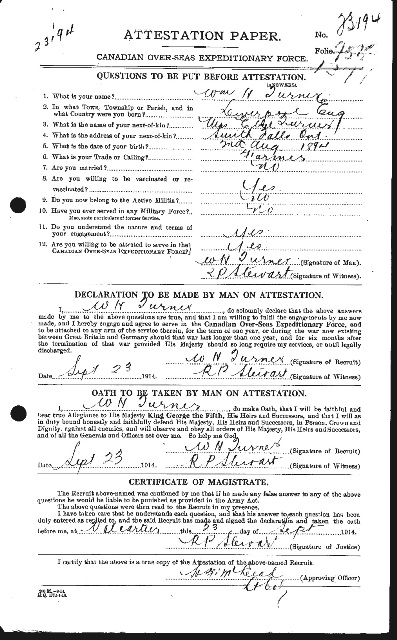 23194
ATTESTATION PAPER.
No. 23194
Folio.
CANADIAN OVER-SEAS EXPEDITIONARY FORCE.
QUESTIONS TO BE PUT BEFORE ATTESTATION.
(ANSWERS)
1. What is your name? Wm H Turner
2. In what Town, Township or Parish, and in
what Country were you born? Liverpool Eng
3. What is the name of your next-of-kin? Mrs. Turner
4. What is the address of your next-of-kin? Smith Falls Ont.
5. What is the date of your birth? 2nd Aug 1894
6. What is your Trade or Calling? Farmer
7. Are you married? No
8. Are you willing to be vaccinated or re-
vaccinated? Yes
9. Do you now belong to the Active Militia? No
10. Have you ever served in any Military Force? No
If so, state particulars of former Service.
11. Do you understand the nature and terms of
your engagement? Yes
12. Are you willing to be attested to serve in the
CANADIAN OVER-SEAS EXPEDITIONARY FORCE? Yes
W H Turner (Signature of Man).
R P Stewart (Signature of Witness).
DECLARATION TO BE MADE BY MAN ON ATTESTATION.
I, W H Turner, do solemnly declare that the above answers
made by me to the above questions are true, and that I am willing to fulfil the engagements by me now
made, and I hereby engage and agree to serve in the Canadian Over-Seas Expeditionary Force, and
to be attached to any arm of the service therein, for the term of one year, or during the war now existing
between Great Britain and Germany should that war last longer than one year, and for six months after
the termination of that war provided His Majesty should so long require my services, or until legally
discharged.
W H Turner (Signature of Recruit)
Date Sept 23 1914. R P Stewart (Signature of Witness)
OATH TO BE TAKEN BY MAN ON ATTESTATION.
I, W H Turner, do make Oath, that I will be faithful and
bear true Allegiance to His Majesty King George the Fifth, His Heirs and Successors, and that I will as
in duty bound honestly and faithfully defend His Majesty, His Heirs and Successors, in Person, Crown and
Dignity, against all enemies, and will observe and obey all orders of His Majesty, His Heirs and Successors,
and of all the Generals and Officers set over me. So help me God.
W H Turner (Signature of Recruit)
Date Sept 23 1914. R P Stewart (Signature of Witness)
CERTIFICATE OF MAGISTRATE.
The Recruit above-named was cautioned by me that if he made any false answer to any of the above
questions he would be liable to be punished as provided in the Army Act.
The above questions were then read to the Recruit in my presence.
I have taken care that he understands each question, and that his answer to each question has been
duly entered as replied to, and the said Recruit has made and signed the declaration and taken the oath
before me, at Valcartier this 23 day of Sept 1914.
R P Stewart (Signature of Justice)
I certify that the above is a true copy of the Attestation of the above-named Recruit.
(Approving Officer)
Lt Col